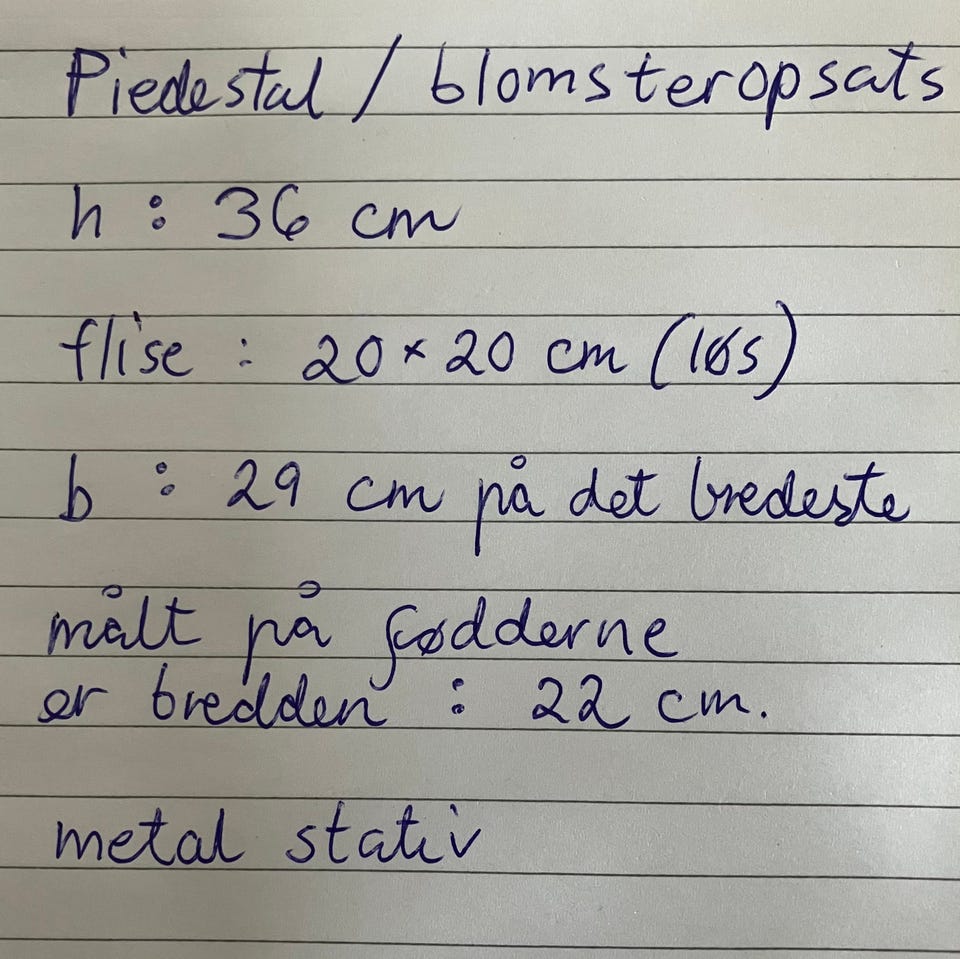 Piedestal / blomsteropsats
h : 36 cm
flise : 20 × 20 cm (løs)
b : 29 cm på det bredeste
målt på fødderne
er bredden : 22 cm.
metal stativ